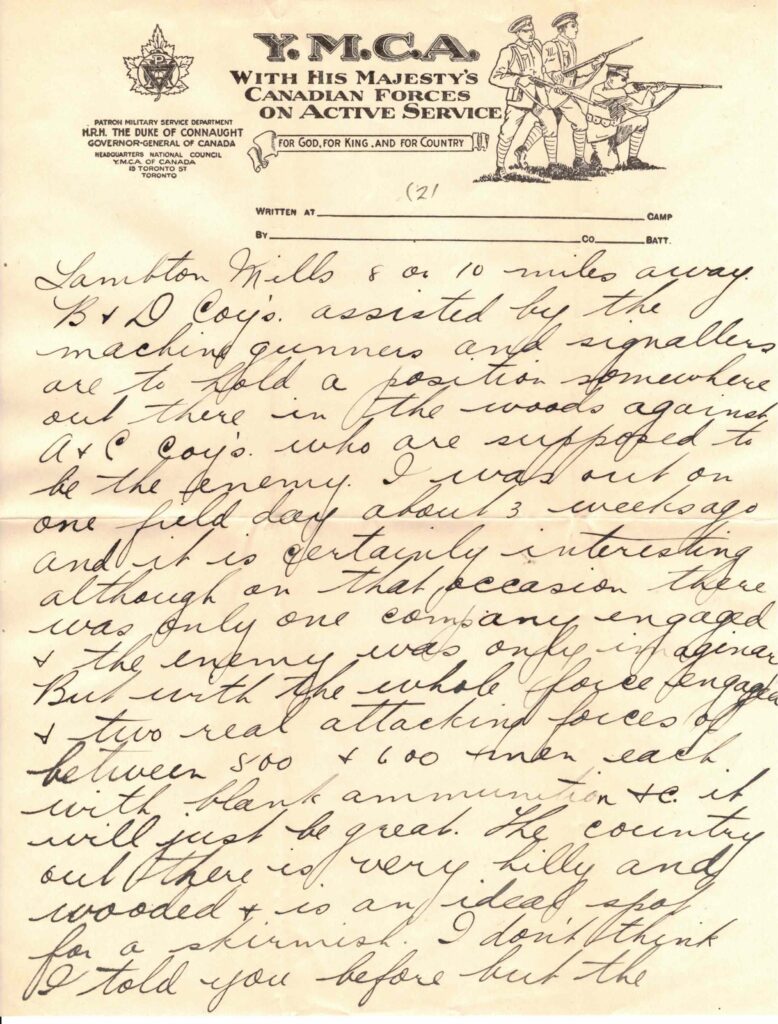 Y.M.C.A.
WITH HIS MAJESTY'S
CANADIAN FORCES
ON ACTIVE SERVICE
FOR GOD, FOR KING, AND FOR COUNTRY
PATRON MILITARY SERVICE DEPARTMENT
H.R.H. THE DUKE OF CONNAUGHT
GOVERNOR-GENERAL OF CANADA
HEADQUARTERS NATIONAL COUNCIL
Y.M.C.A. OF CANADA
15 TORONTO ST
TORONTO
(2)
WRITTEN AT CAMP
BY CO BATT.
Lambton Mills 8 or 10 miles away.
B & D Coy's. assisted by the
machine gunners and signallers
are to hold a position somewhere
out there in the woods against
A & C Coy's. who are supposed to
be the enemy. I was out on
one field day about 3 weeks ago
and it is certainly interesting
although on that occasion there
was only one company engaged
& the enemy was only imaginar
But with the whole force engaged
& two real attacking forces of
between 500 & 600 men each
with blank ammunition &c. it
will just be great. The country
out there is very hilly and
wooded & is an ideal spot
for a skirmish. I don't think
I told you before but the